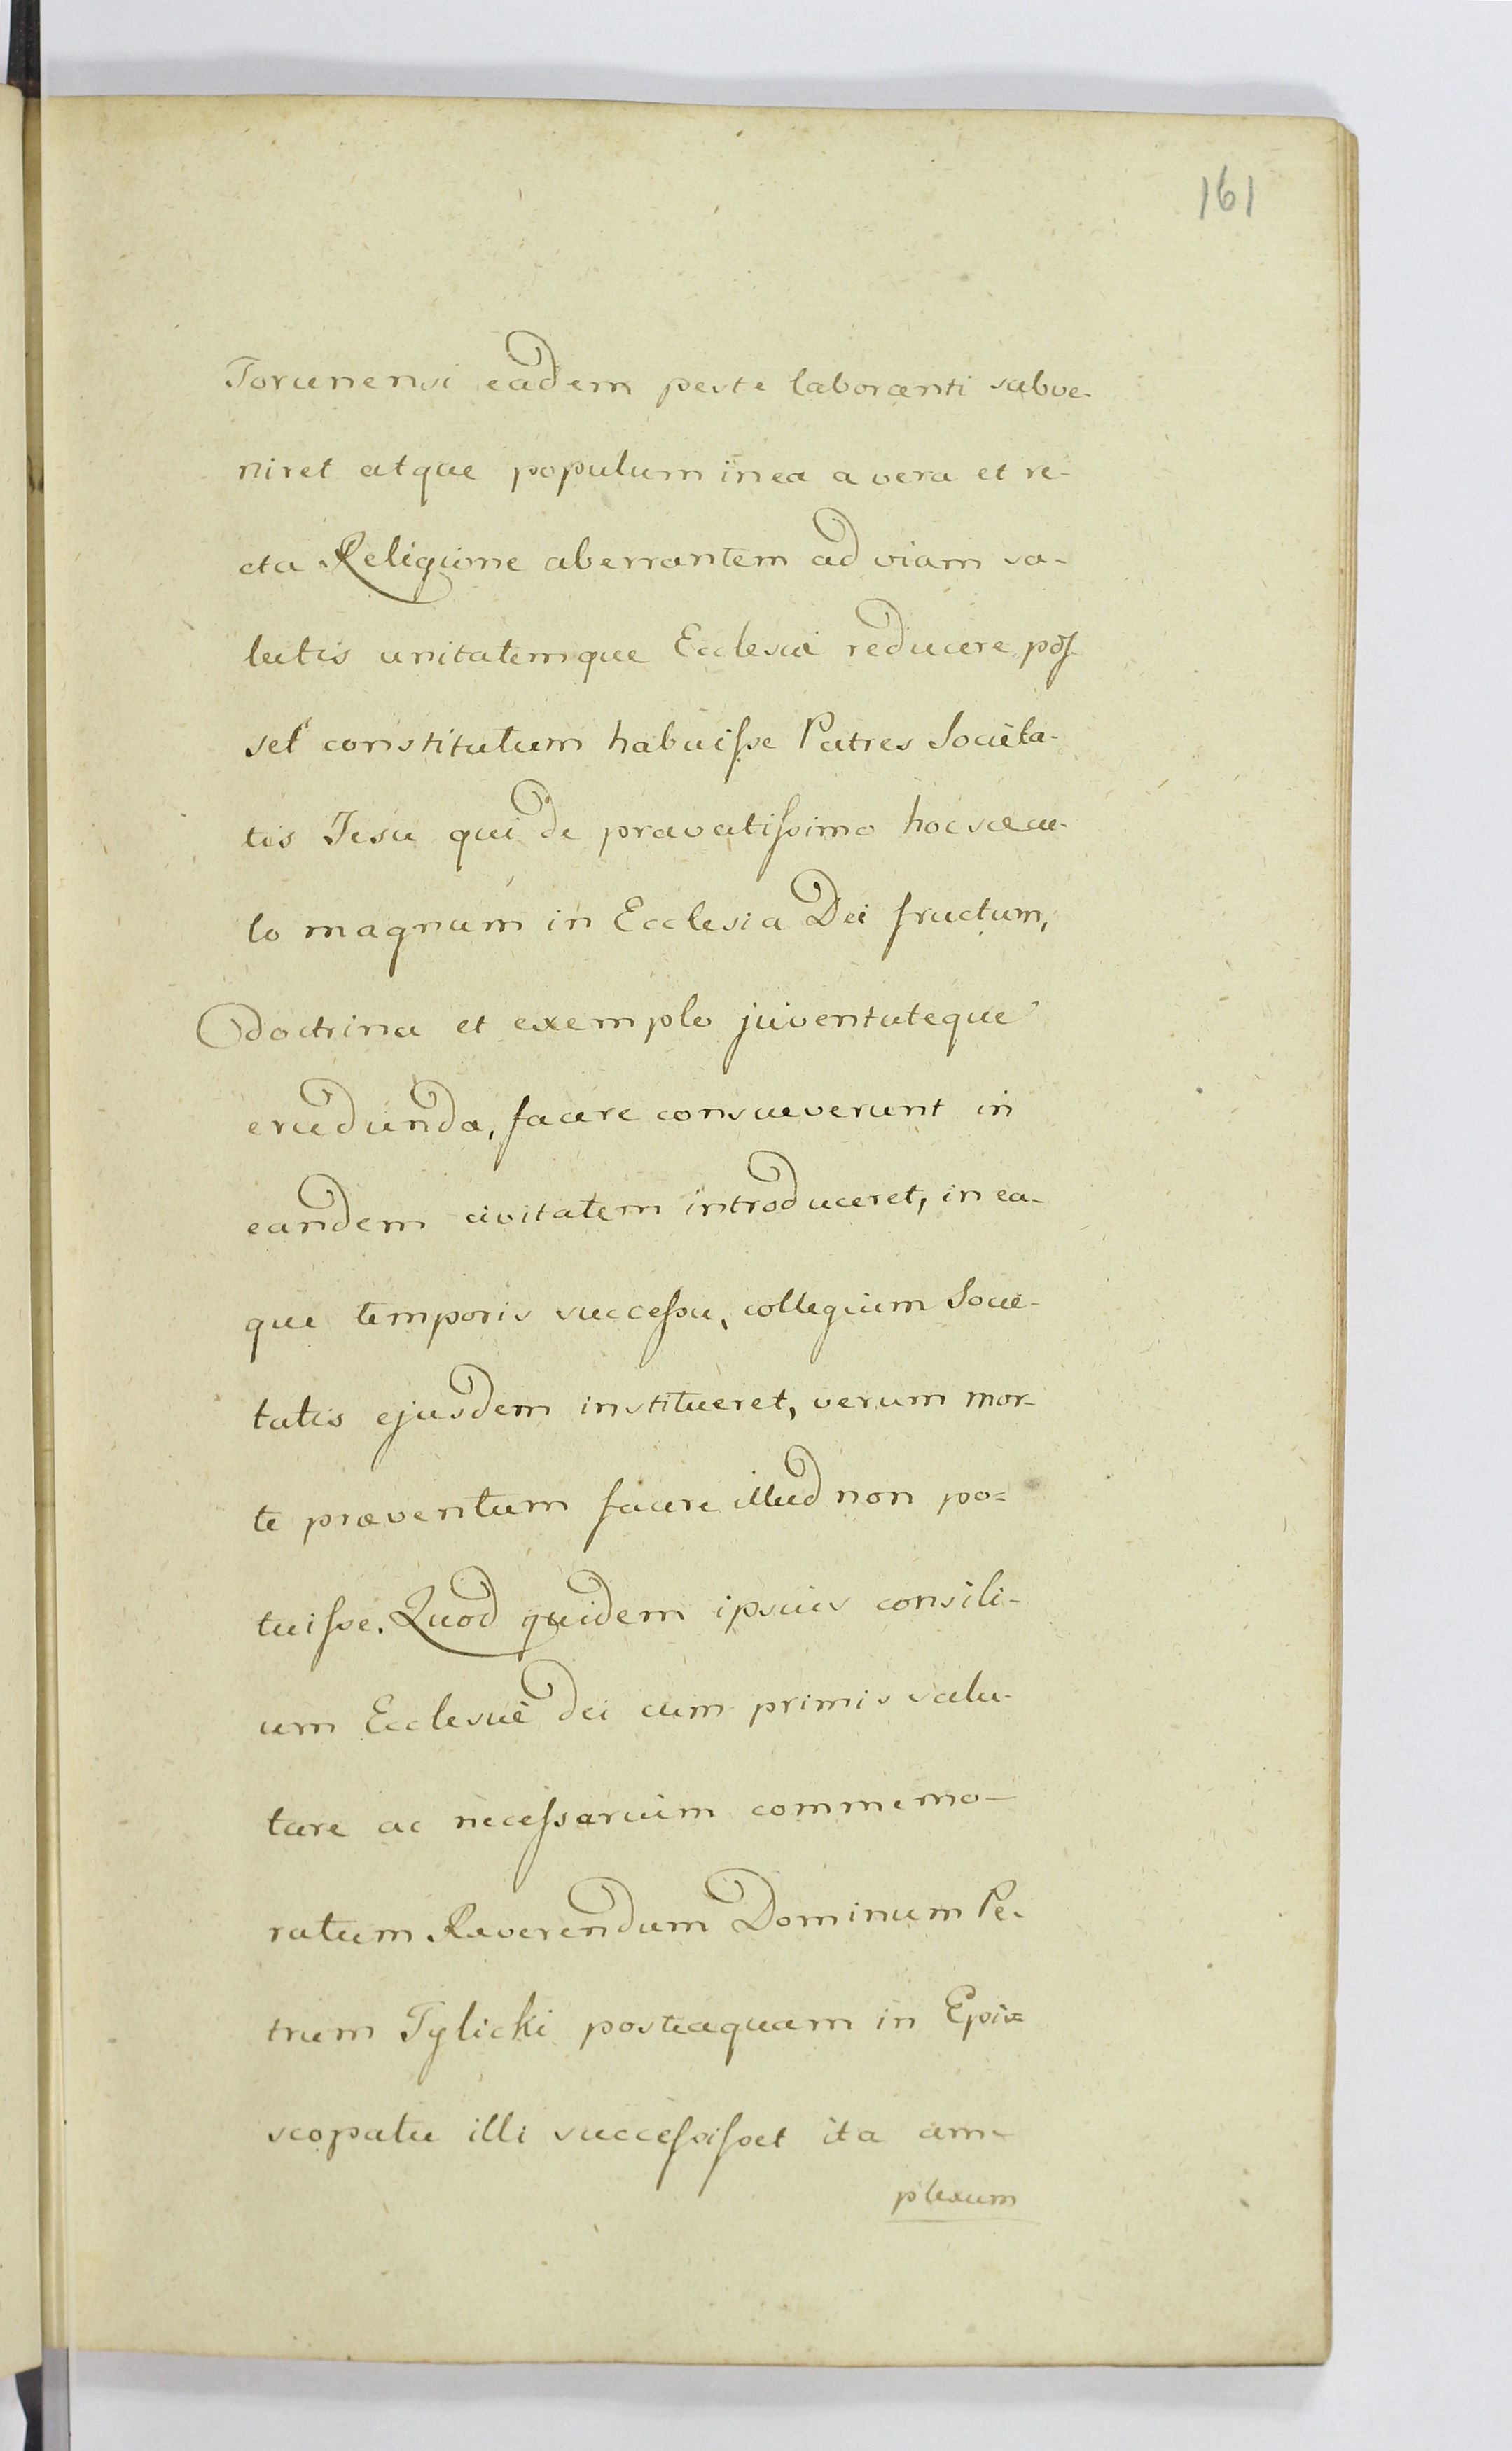 161
Torunensi eadem peste laboranti subve-
niret atque populum in ea a vera et re-
cta Religione aberrantem ad viam sa-
lutis unitatemque Ecclesiæ reducere pos-
set constitutum habuisse Patres Societa-
tis Jesu qui de pravatissimo hoc sæcu-
lo magnum in Ecclesia Dei fructum,
Doctrina et exemplo juventuteque
erudiunda, facere consueverunt in
eandem civitatem introduceret, in ea-
que temporis successu, collegium Socie-
tatis ejusdem institueret, verum mor-
te præventum facere illud non po=
tuisse. Quod quidem ipsius consili-
um Ecclesiæ dei cum primis salu-
tare ac necessarium commemo-
ratum Reverendum Dominum Pe-
trum Tylicki posteaquam in Epi=
scopatu illi successisset ita am-
plexum